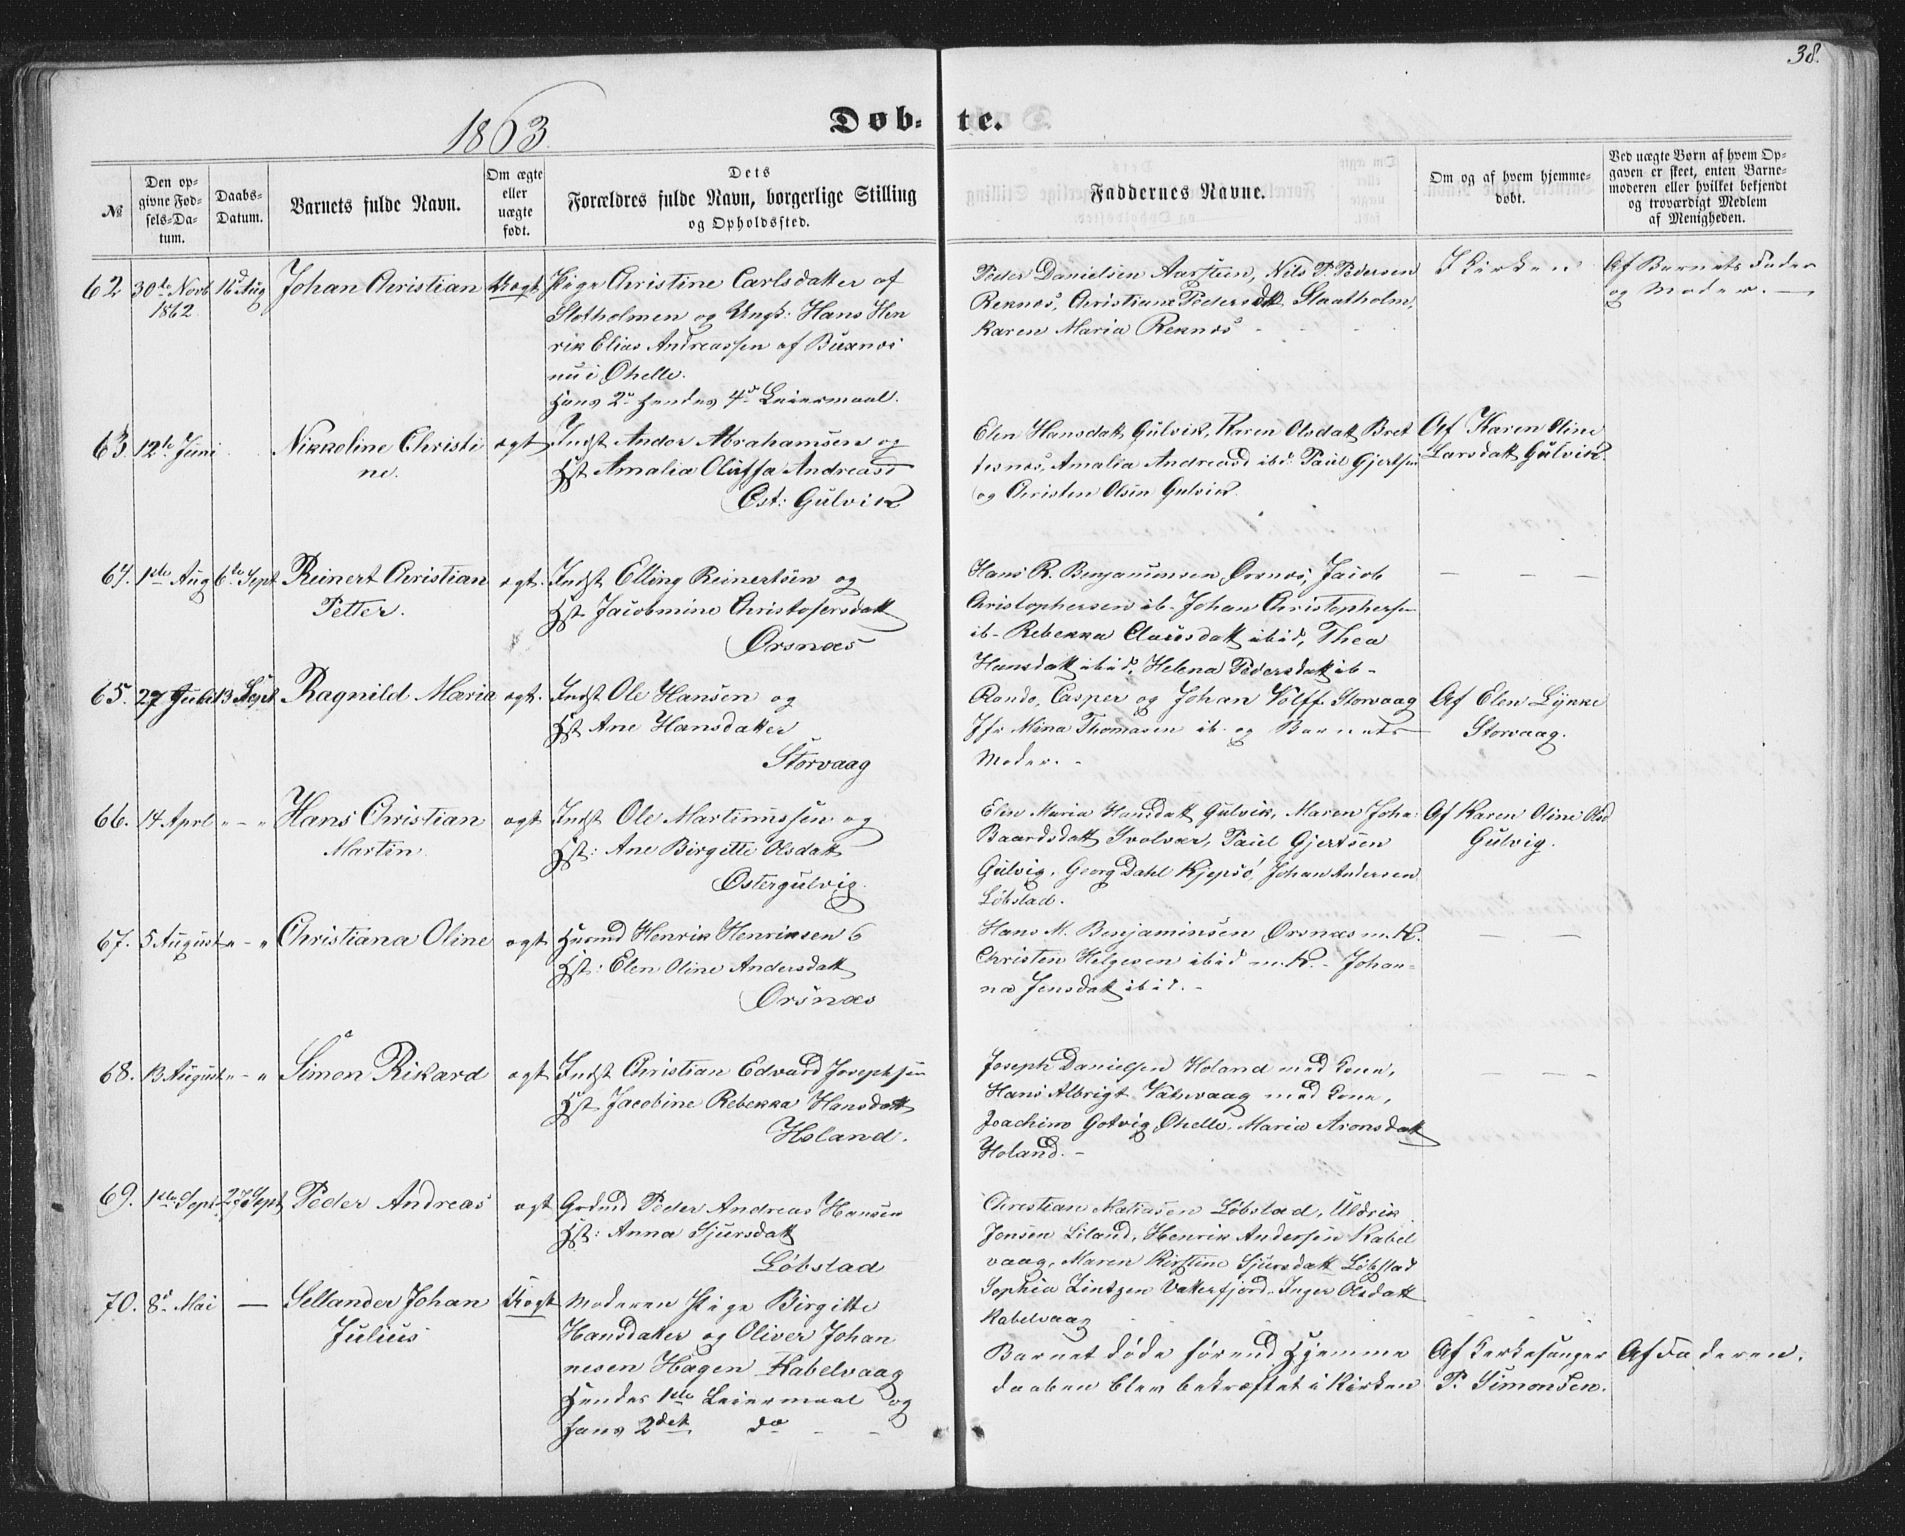 38.
1863.
Døbte.
№
Den opgivne Fødsels-Datum.
Daabs-Datum.
Barnets fulde Navn.
Om ægte eller uægte født.
Dets Forældres fulde Navn, borgerlige Stilling og Opholdssted.
Faddernes Navne.
Om og af hvem hjemmedøbt.
Ved uægte Børn af hvem Opgaven er skeet, enten Barnemoderen eller hvilket bekjendt og troværdigt Medlem af Menigheden.
62 30te Novb 1862 Aug Johan Christian Uægt
Pige Christine Carlsdatter af
Slotholmen og Ungk: Hans Hen
rik Elias Andreassen af Buxnæs
nu i Ohelle.
Hans 2d Hendes 4d Leiermaal.
Peder Danielsen Aarsteen, Nils P. Pedersen
Reknæs, Christiane Pedersdtt Slaatholm,
Karen Maria Reknæs
I Kirken
Af Barnets Fader
og Moder.
63. 12te Juni Nikkoline Christi
ne. ægt
Indst Andor Abrahamsen og
Hst Amalia Oluffa Andreasd
Øst: Gulvik
Elen Hansdatt Gulvik, Karen Olsdatt Bret
tesnæs, Amalia Andreasd ibid Paul Gjertsen
og Christen Olsen Gulvik.
Af Karen Oline
Larsdatt Gulvik.
64. 1ste Aug 6te Sept Reinert Christian
Petter. ægt.
Indst Elling Reinertsen og
Hst Jacobmine Christofersdatt
Ørsnæs
Hans R. Benjaminsen Ørsnæs, Jacob
Christophersen ib- Johan Christophersen
ib- Rebekka Clausdatt ibid, Thea
Hansdatt ibid, Helena Pedersdatt ib-
65. 27 Juli 13 Sept Ragnild Maria ægt.
Indst Ole Hansen og
Hst Ane Hansdatter
Storvaag
Casper og Johan Volff Storvaag
Jfr Mina Thomasen ib. og Barnets
Moder.
Af Elen Lynke
Storvaag.
66. 14 Aprl " - " Hans Christian
Martin. ægt
Indst Ole Martinussen og
Hst: Ane Birgitte Olsdatt
Østergulvig.
Elen Maria Hansdatt Gulvik, Maren Joha
Baardsdatt Svolvær, Paul Gjertsen
Gulvig, Georg Dahl Kjepsø, Johan Andersen
Løbstad.
Af Karen Oline Olsd
Gulvig.
67. 5 August " - " Christiana Oline ægt
Husmd Henrik Henriksen
Hst: Elen Oline Andersdatt
Ørsnæs
Hans M. Benjaminsen Ørsnæs m. K.
Christen Helgesen ibid m. K. - Johan-
na Jensdatt ibid. -
68. 13 August " - " Simon Rikard ægt
Indst Christian Edvard Josephsen
Hst Jacobine Rebekka Hansdatt
Holand.
Joseph Danielsen Holand med Kone,
Hans Albrigt Vatnvaag med Kone,
Joachim Gotvig Ohelle, Maria Aronsdatt
Holand. -
69. 1ste Sept 27 Sept Peder Andreas ægt
Grdmd Peder Andreas Hansen
Hst: Anna Sjursdatt
Løbstad
Christian Løbstad, Uldrik
Jensen Liland, Henrik Andersen Kabel
vaag, Maren Kirstine Sjursdatt Løbstad
Sophia Lintzen Vaterfjord. Inger Olsdatt
Kabelvaag
70. 8d Mai — Sellander Johan
Julius Uægt
Moderen Pige Birgitte
Hansdatter og Oliver Johan
nesen Hagen Kabelvaag
Hendes 1ste Leiermaal og
hans 2det do - -
Barnet døde førend Hjemme
daaben blev bekræftet i Kirken
Af Kirkesanger
P. Simonsen.
Af Faderen.